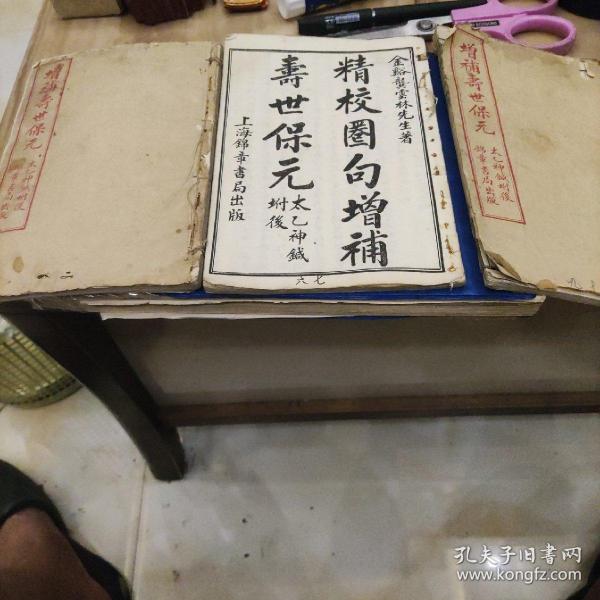 增補壽世保元
太乙神鍼附後
錦章書局出版
一 二
金谿龔雲林先生著
精校圈句增補
壽世保元
太乙神鍼
坿後
上海錦章書局出版
六 七
增補壽世保元
太乙神鍼坿後
錦章書局出版
九
孔夫子旧書网
www.kongfz.com